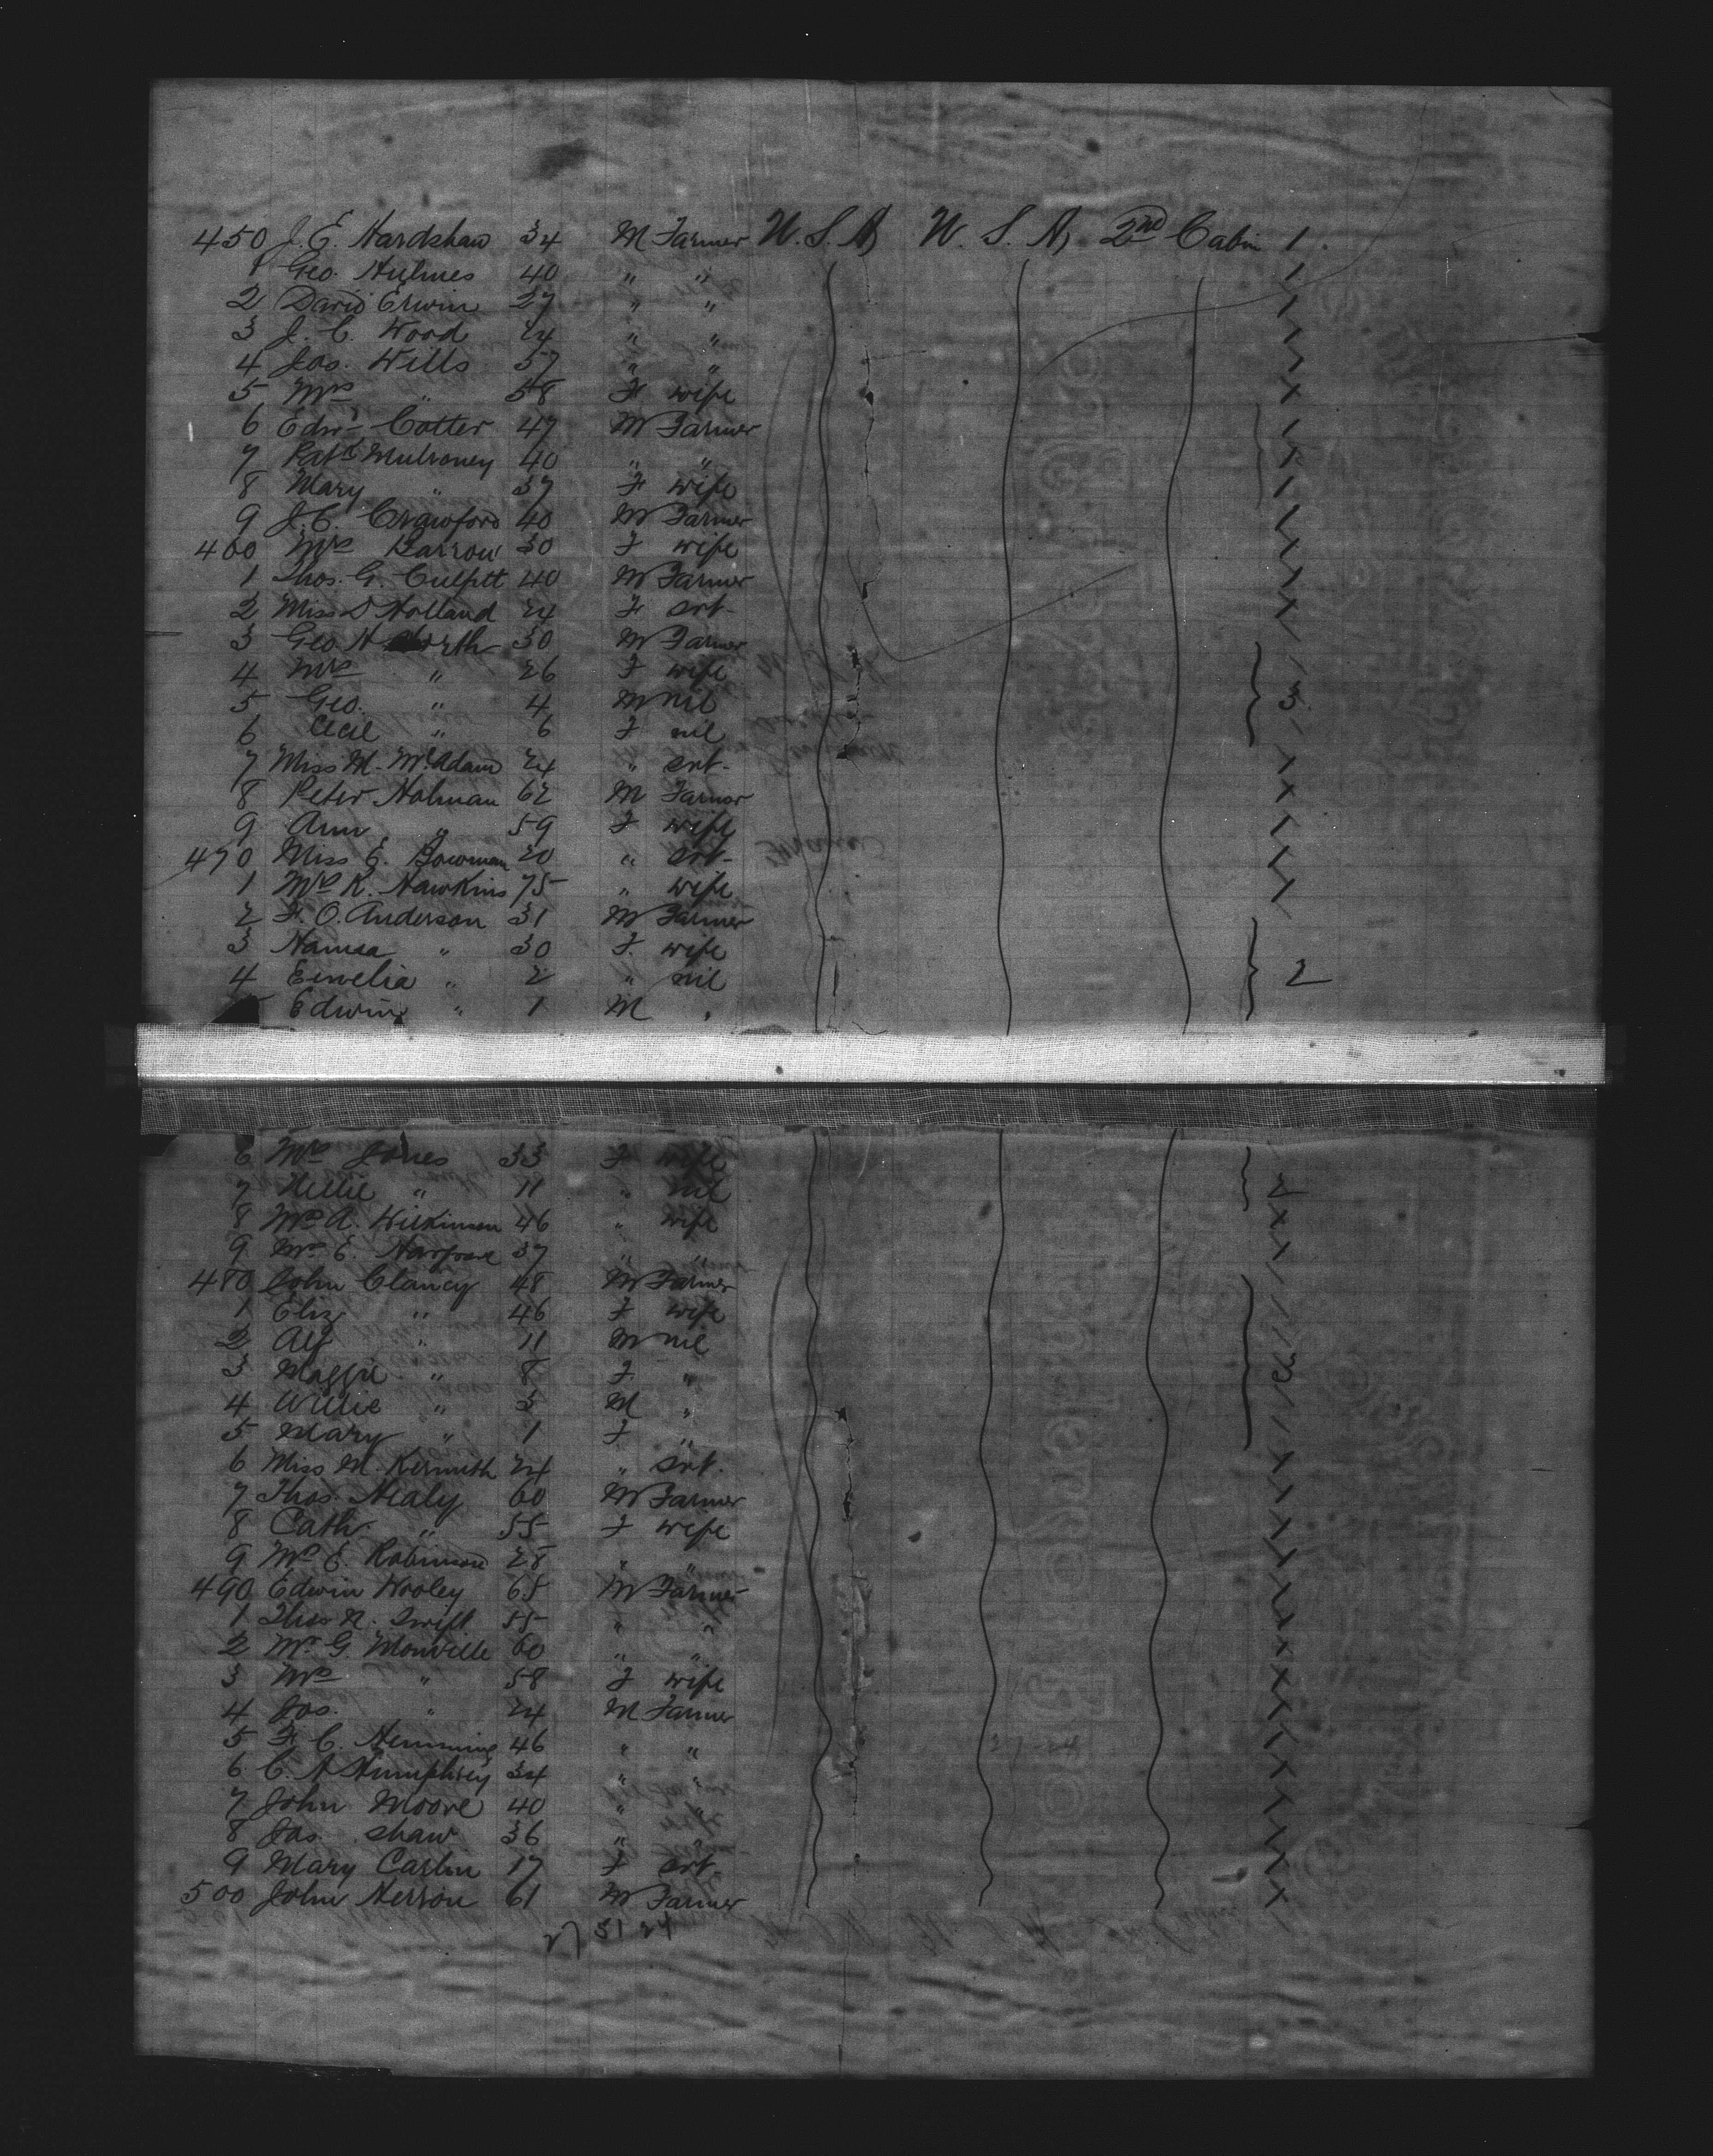 450 J. E. Hardshaw 34 M Farmer U. S. A, U. S. A, 2nd Cabin 1
1 Geo. Hulmes 40 " " 1
2 David Erwin 27 " " 1
3 J. C. Wood 24 " " 1
4 Jos. Wills 57 " " 1
5 Mrs " 58 F wife 1
6 Edwd Cotter 47 M Farmer 1
7 Patk Mulroney 40 " " 1
8 Mary " 37 F wife 1
9 J. C. Crawford 40 M Farmer 1
460 Mrs Barrow 30 F wife 1
1 Thos. G. Culpitt 40 M Farmer 1
2 Miss D Holland 24 F svt- 1
3 Geo H 30 M Farmer
4 Mrs " 26 F wife
5 Geo. " 4 M nil 3
6 Cecil " 6 F nil
7 Miss M. McAdam 24 " svt- 1
8 Peter Holman 62 M Farmer 1
9 Ann " 59 F wife 1
470 Miss E. Bowman 20 " svt- 1
1 Mrs R. Hawkins 75 " wife 1
2 F. O. Anderson 31 M Farmer
3 Hamsa " 30 F. wife
4 Emelia " 2 " nil 2
5 Edwin " 1 M "
6 Mrs Jones 33 F wife
7 Nellie " 11 " nil 2
8 Mrs A. Wilkinson 46 " wife 1
9 Mrs E. Hargrave 37 " " 1
480 John Clancy 48 M Farmer
1 Eliz " 46 F wife
2 Alf " 11 M nil
3 Maggie " 8 F "
4 Willie " 3 M "
5 Mary " 1 F "
6 Miss M. 24 " svt. 1
7 Thos. Healy 60 M Farmer 1
8 Cath. " 55 F wife 1
9 Mrs E. Robinson 28 " " 1
490 Edwin Wooley 65 M Farmer 1
1 Thos N. Swift 55 " " 1
2 Mr G. Monville 60 " " 1
3 Mrs " 58 F wife 1
4 Jos. " 24 M Farmer 1
5 F. C. Hemming 46 " " 1
6 C. A Humphrey 34 " " 1
7 John Moore 40 " " 1
8 Jas. Shaw 36 " " 1
9 Mary Carlin 17 F svt- 1
500 John Herron 61 M Farmer 1
27 51 24